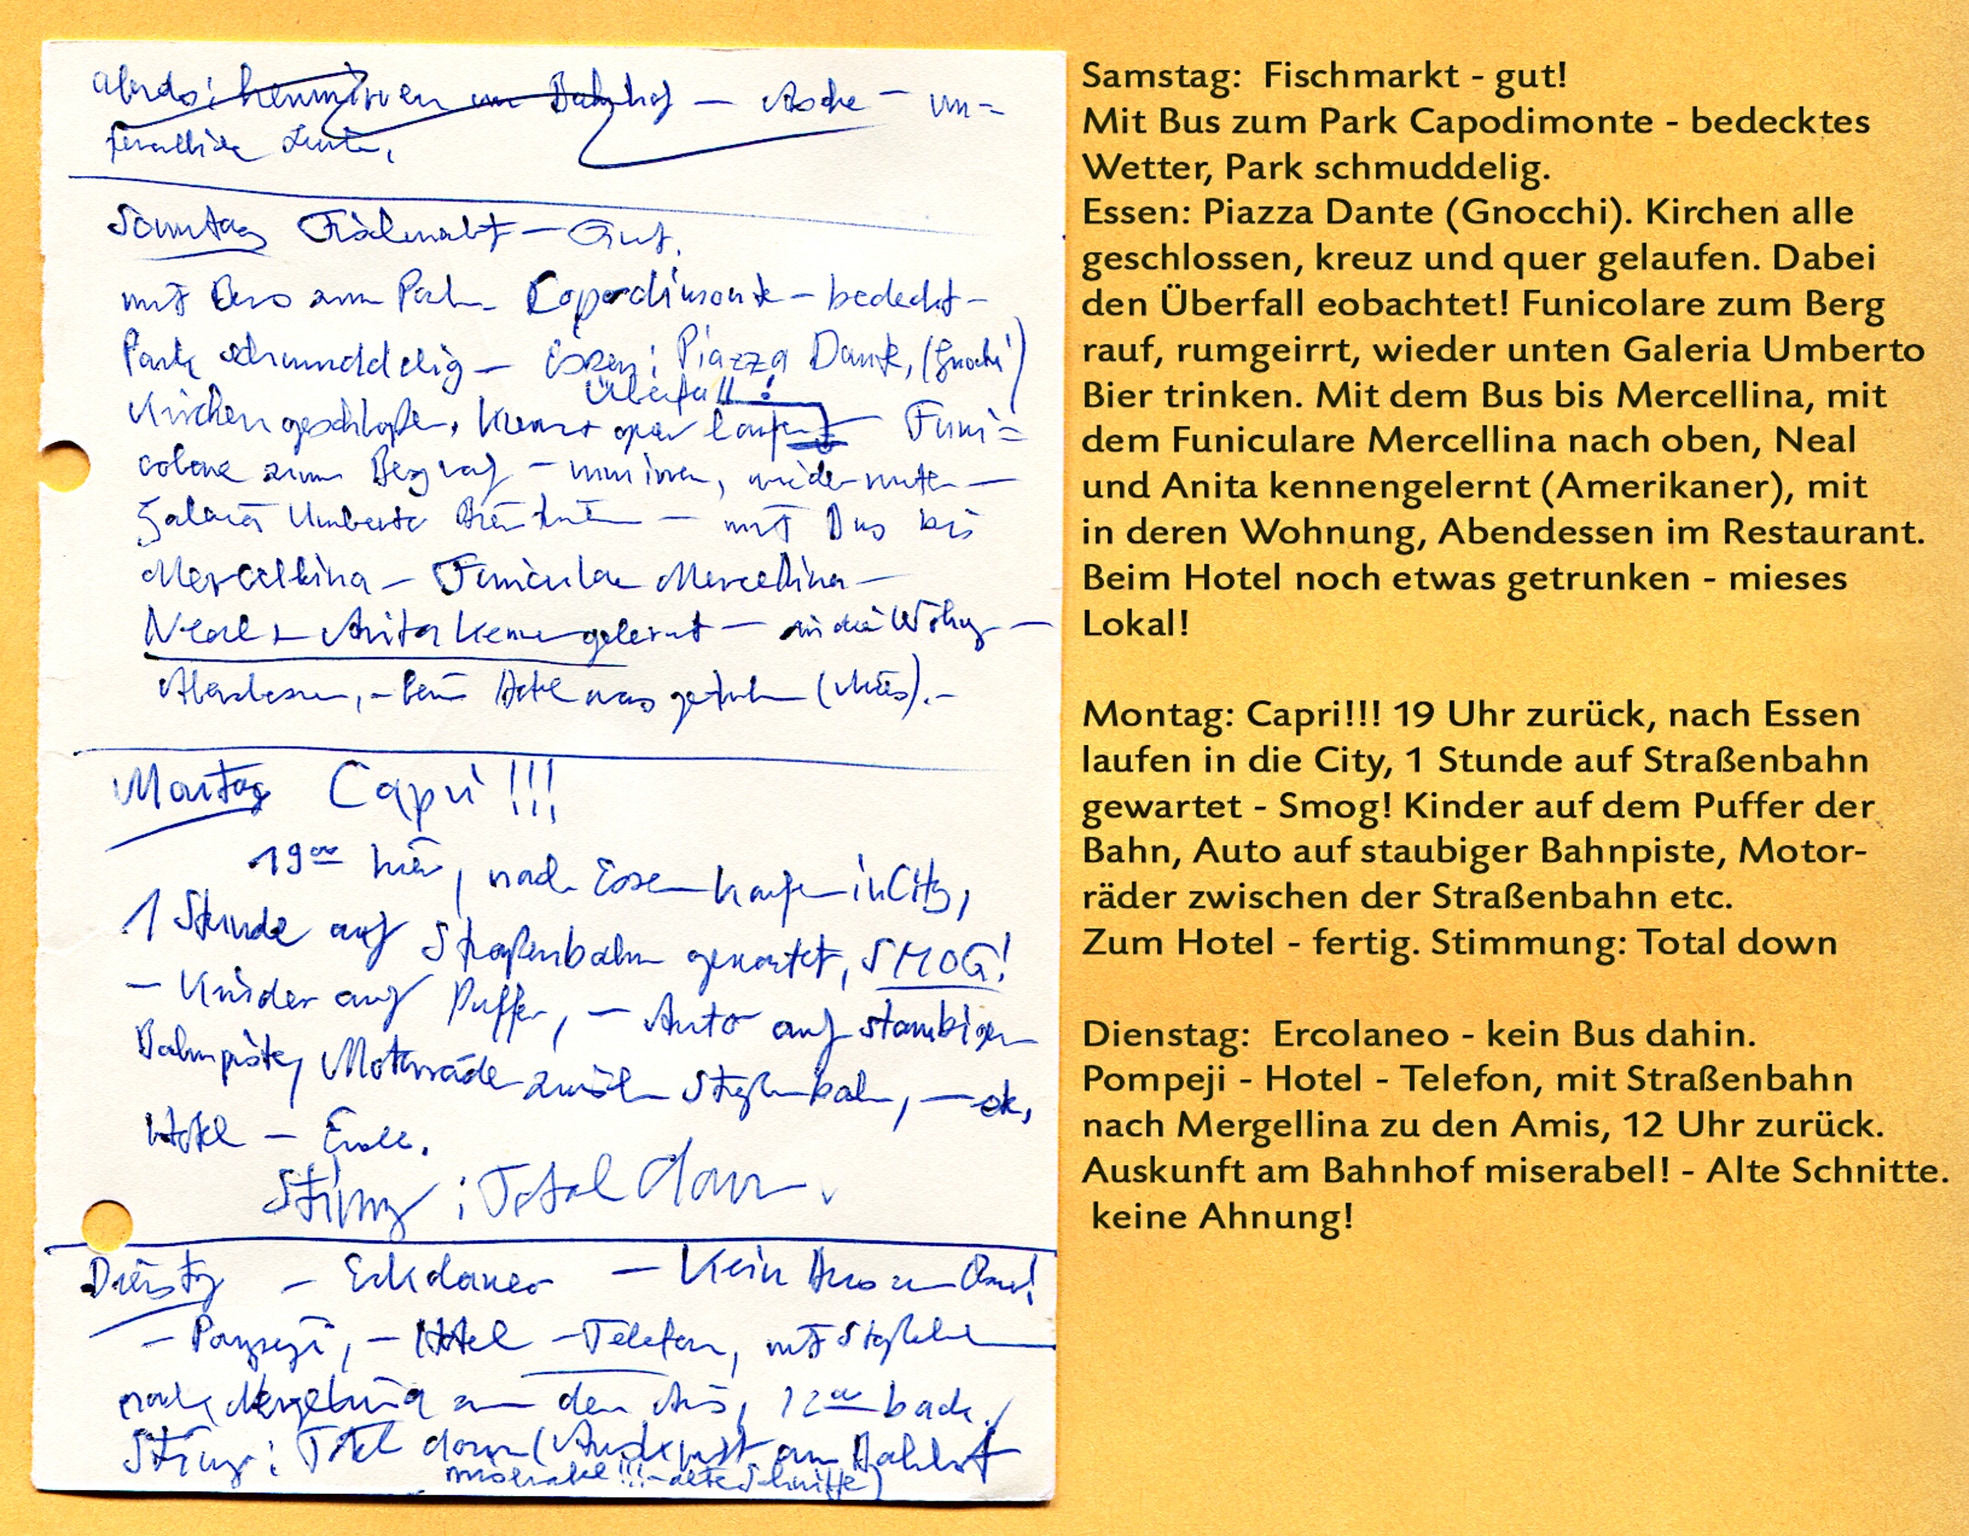 Abends: herumirren am Bahnhof – Asche – un=
Leute,
Sonntag Fischmarkt – Gut.
mit Bus zum Park Capodimonte – bedeckt –
Park schmuddelig – Essen: Piazza Dante, (Gnochi)
Überfall!
Kirchen geschloßen, kreuz + quer laufen – Funi=
colare zum Berg rauf – rumirren, wieder unten –
Galaria Umberto Bier trinken – mit Bus bis
Mercellina – Funiculare Mercellina –
Neal + Anita kennengelernt – in die Wohng –
Abendessen, – beim Hotel was getrunken (Mies). –
Montag Capri!!!
19⁰⁰ hier, nach Essen laufen in City,
1 Stunde auf Straßenbahn gewartet, SMOG!
– Kinder auf Puffer, – Auto auf staubiger
Bahnpiste, Motorräder zwischen Straßenbahn, –
Hotel – Ende.
Stimmg: Total down.
Dienstg – Erkolaneo – Kein Bus zum
– Pompeji, – Hotel – Telefon, mit Straßenbahn
nach Mergelina zu den Amis, 12⁰⁰ back.
Stimmg: Total down (Auskunft am Bahnhof
miserabel!!! – alte Schnitte)
Samstag:  Fischmarkt - gut!
Mit Bus zum Park Capodimonte - bedecktes
Wetter, Park schmuddelig.
Essen: Piazza Dante (Gnocchi). Kirchen alle
geschlossen, kreuz und quer gelaufen. Dabei
den Überfall eobachtet! Funicolare zum Berg
rauf, rumgeirrt, wieder unten Galeria Umberto
Bier trinken. Mit dem Bus bis Mercellina, mit
dem Funiculare Mercellina nach oben, Neal
und Anita kennengelernt (Amerikaner), mit
in deren Wohnung, Abendessen im Restaurant.
Beim Hotel noch etwas getrunken - mieses
Lokal!
Montag: Capri!!! 19 Uhr zurück, nach Essen
laufen in die City, 1 Stunde auf Straßenbahn
gewartet - Smog! Kinder auf dem Puffer der
Bahn, Auto auf staubiger Bahnpiste, Motor-
räder zwischen der Straßenbahn etc.
Zum Hotel - fertig. Stimmung: Total down
Dienstag:  Ercolaneo - kein Bus dahin.
Pompeji - Hotel - Telefon, mit Straßenbahn
nach Mergellina zu den Amis, 12 Uhr zurück.
Auskunft am Bahnhof miserabel! - Alte Schnitte.
keine Ahnung!